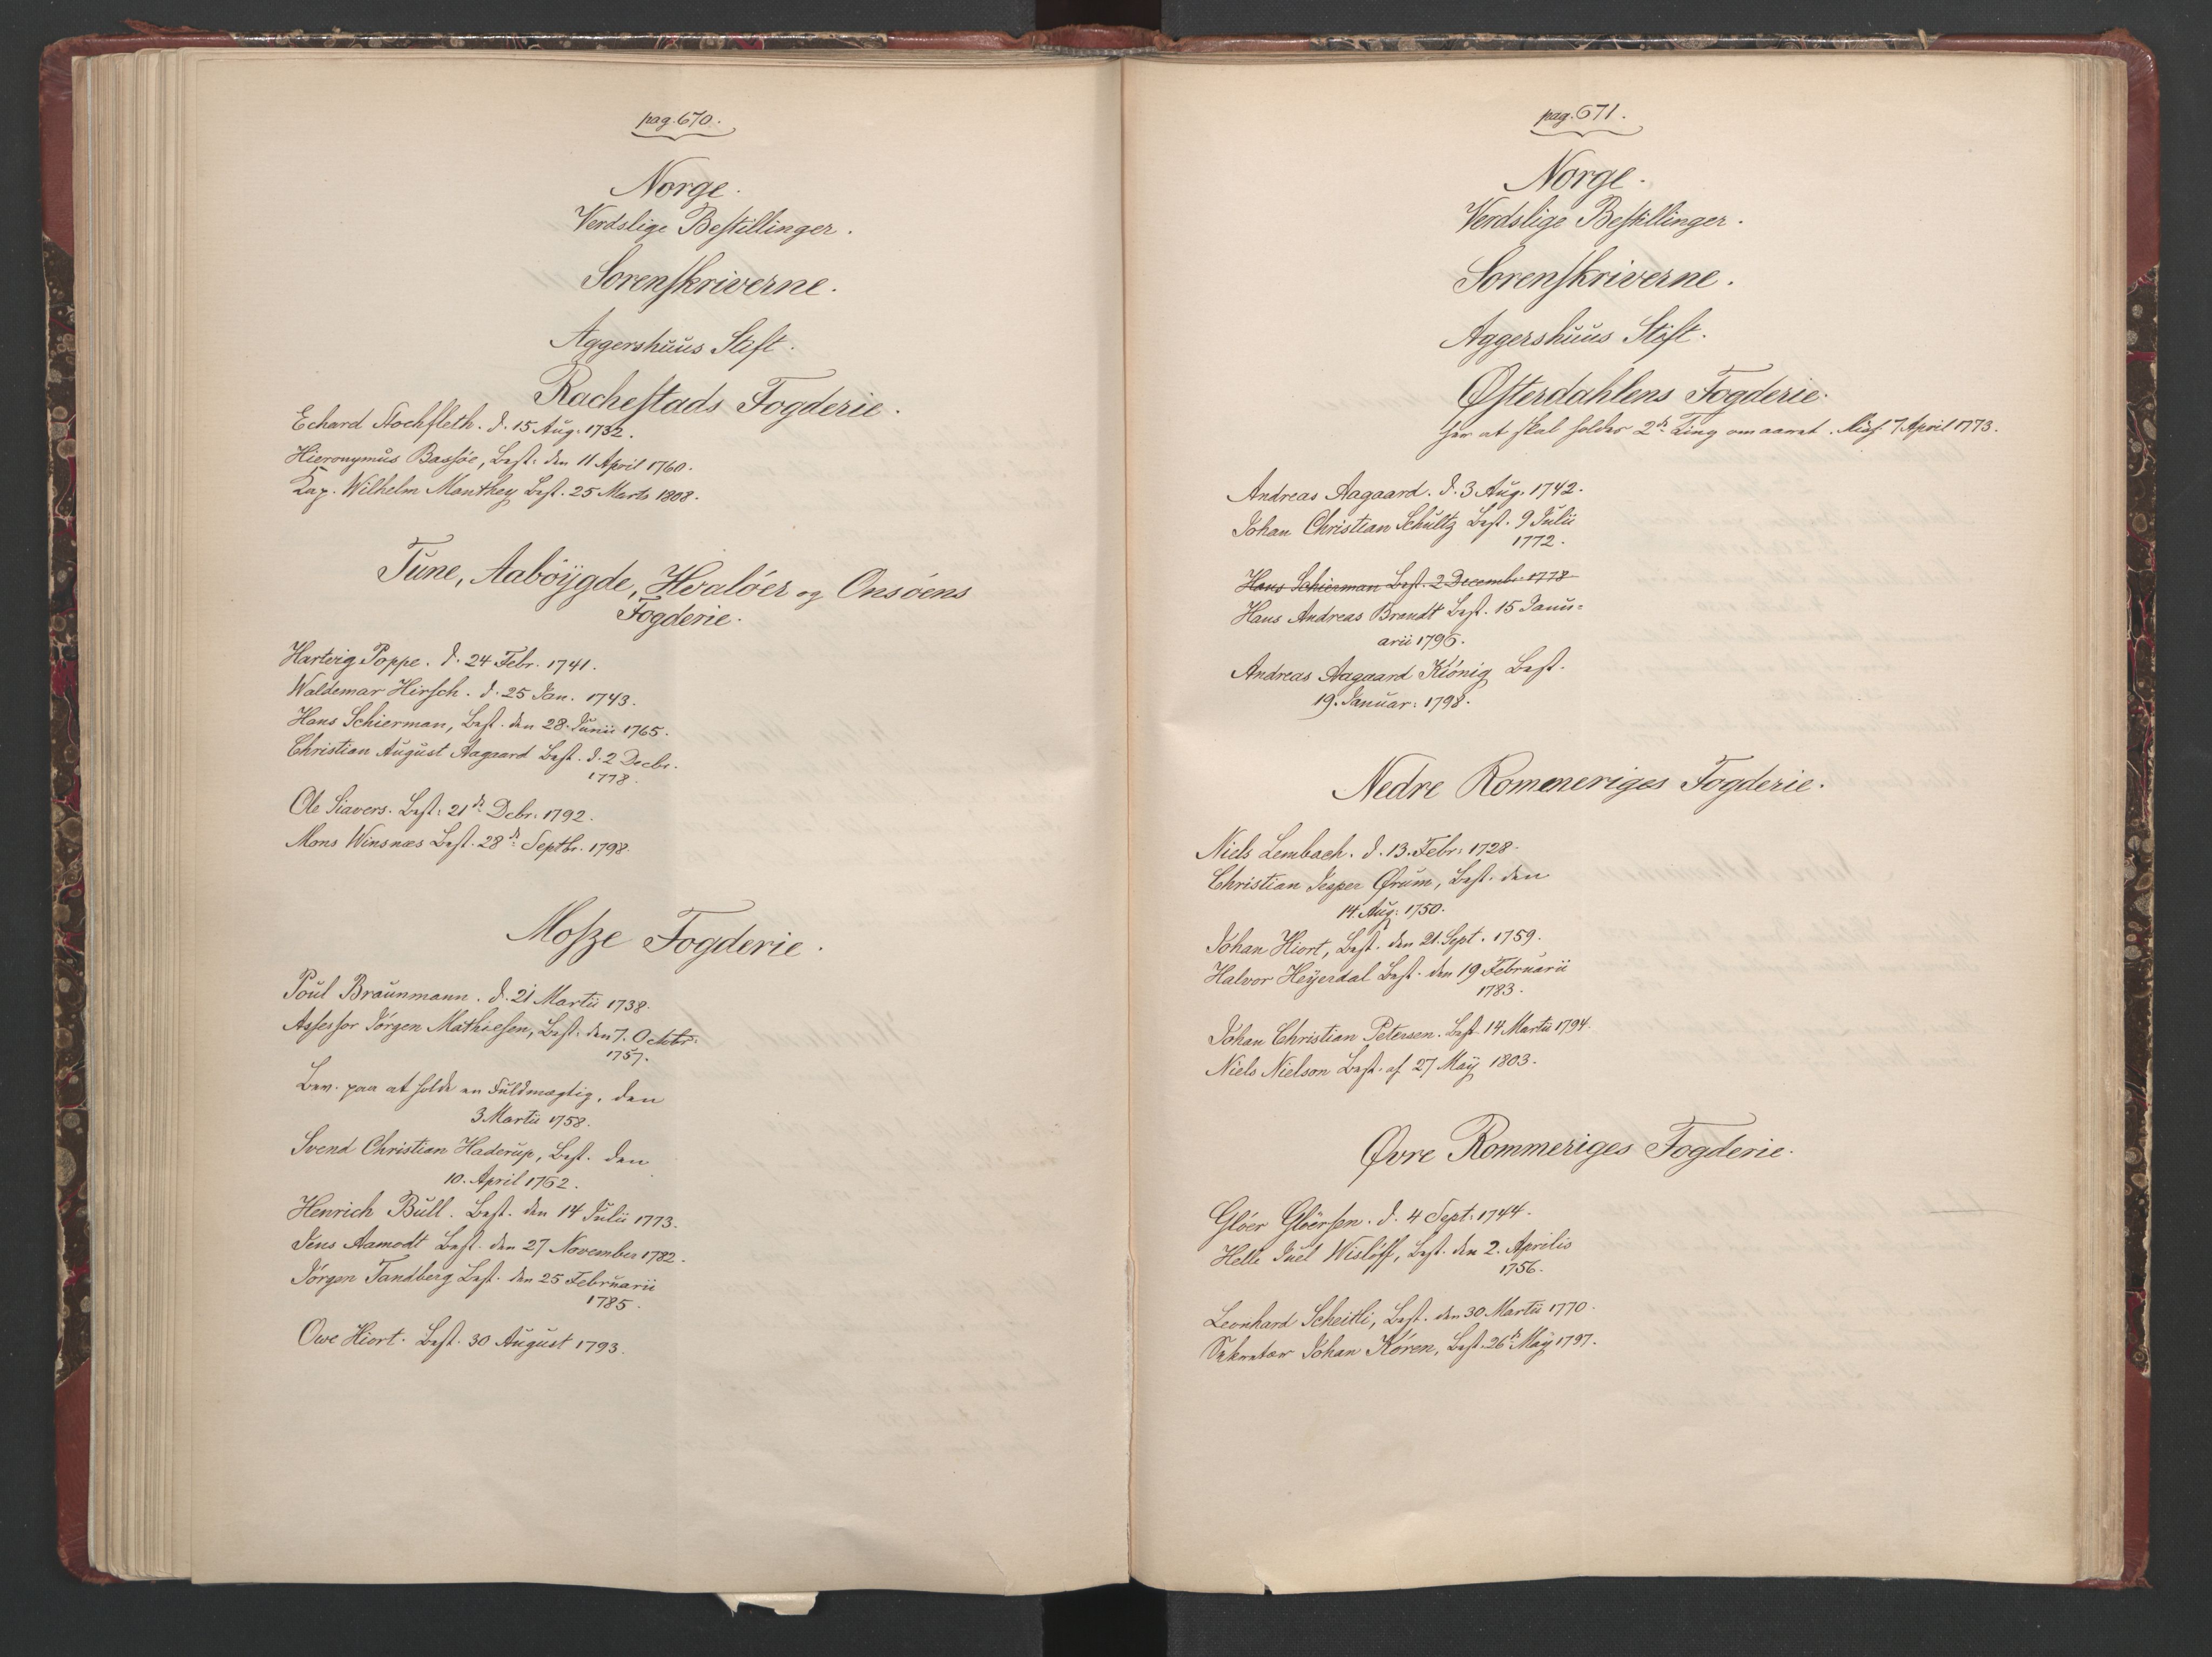 pag. 670.
Norge.
Verdslige Bestillinger.
Sorenskriverne.
Aggershuus Stift.
Rachestads Fogderie.
Echard Stochfleth. d. 15 Aug. 1732.
Hieronymus Bassøe, Best. den 11 April 1760.
Cap. Wilhelm Manthey Best. 25 Marts 1808.
Tune, Aabøygde, Hvaløer og Onsøens
Fogderie.
Hartvig Poppe. d. 24 Febr. 1741.
Waldemar Hirsch. d. 25 Jan. 1743.
Hans Schierman, Best. den 28. Junii 1765.
Christian August Aagaard Best. d. 2 Decbr.
1778.
Ole Siavers. Best: 21de Debr. 1792.
Mons Winsnæs Best. 28de Septbr. 1798.
Mosze Fogderie.
Poul Braunmann. d. 21 Martii 1738.
Assessor Jörgen Mathiesen, Best. den 7. Octobr.
1757.
Bev. paa at holde en Fuldmægtig, den
3 Martii 1758.
Svend Christian Haderup, Best. den
10. April 1762.
Henrich Bull. Best. den 14 Julii 1773.
Jens Aamodt Best. den 27 November 1782.
Jörgen Tandberg Best. den 25 Februarii
1785.
Owe Hiort. Best. 30 August 1793.
pag. 671.
Norge.
Verdslige Bestillinger.
Sorenskriverne.
Aggershuus Stift.
Østerdahlens Fogderie.
her at skal holdes 2de Ting om aaret. Miss. 7 April 1773.
Andreas Aagaard. d. 3 Aug. 1742.
Johan Christian Schultz Best. 9 Julii
1772.
Hans Schierman Best. 2 Decembr 1778
Hans Andreas Brandt Best. 15 Janu-
arii 1796.
Andreas Aagaard Kiönig Best.
19. Januar: 1798.
Nedre Rommeriges Fogderie.
Niels Lembach. d. 13. Febr: 1728.
Christian Jesper Ørum, Best. den
14. Aug: 1750.
Johan Hiort, Best. den 21. Sept. 1759.
Halvor Heyerdal Best. den 19 Februarii
1783.
Johan Christian Petersen. Best. 14 Martii 1794.
Niels Nielson Best. af 27 Maÿ 1803.
Øvre Rommeriges Fogderie.
Glöer Glöersen. d. 4 Sept: 1744.
Helle Juel Wislöff, Best. den 2. Aprilis
1756.
Leonhard Scheitli, Best. den 30 Martii 1770.
Sekretær Johan Kören, Best. 26de Maÿ 1797.